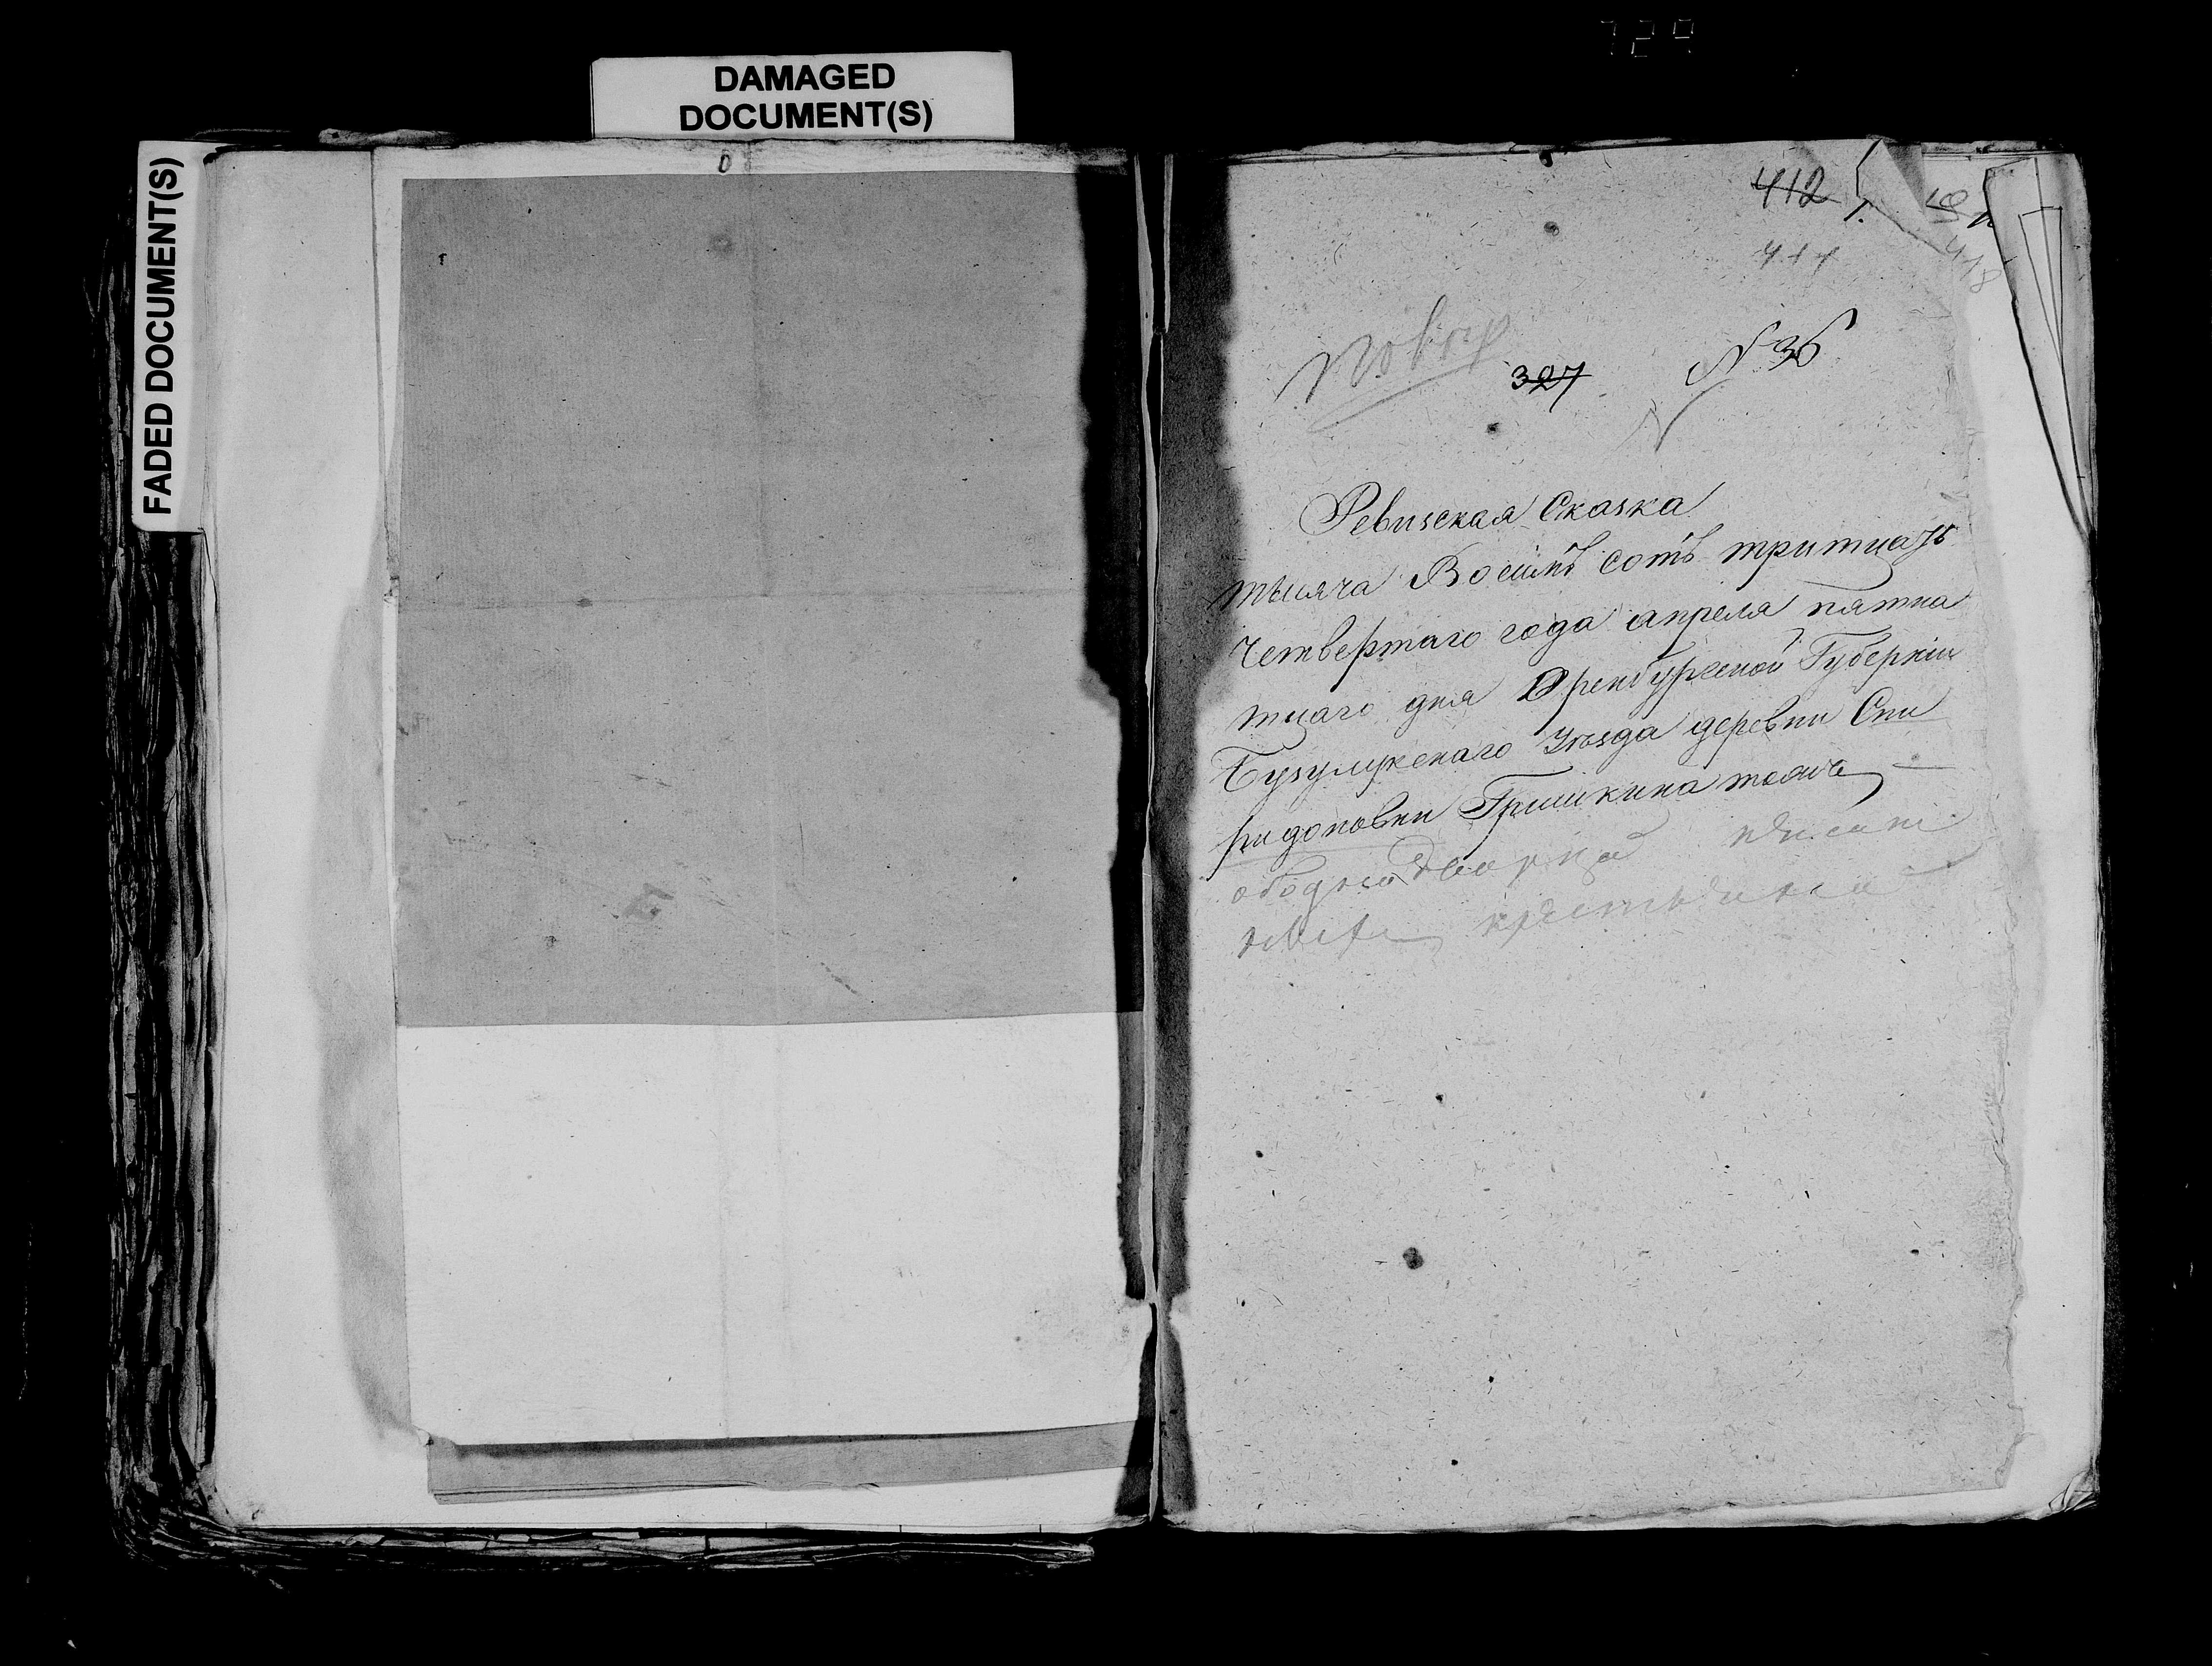 DAMAGED
DOCUMENT(S)
FADED DOCUMENT(S)
412
417
418
повѣр
327
N 36
Ревизская Сказка
тысяча Восемь сотъ тритцать
четвертаго года апреля пятна
тцаго дня Оренбургской Губерніи
Бузулукскаго Уѣзда деревни Спи
ридоновки Гришкина тожъ
ободнодворца
крестьянна